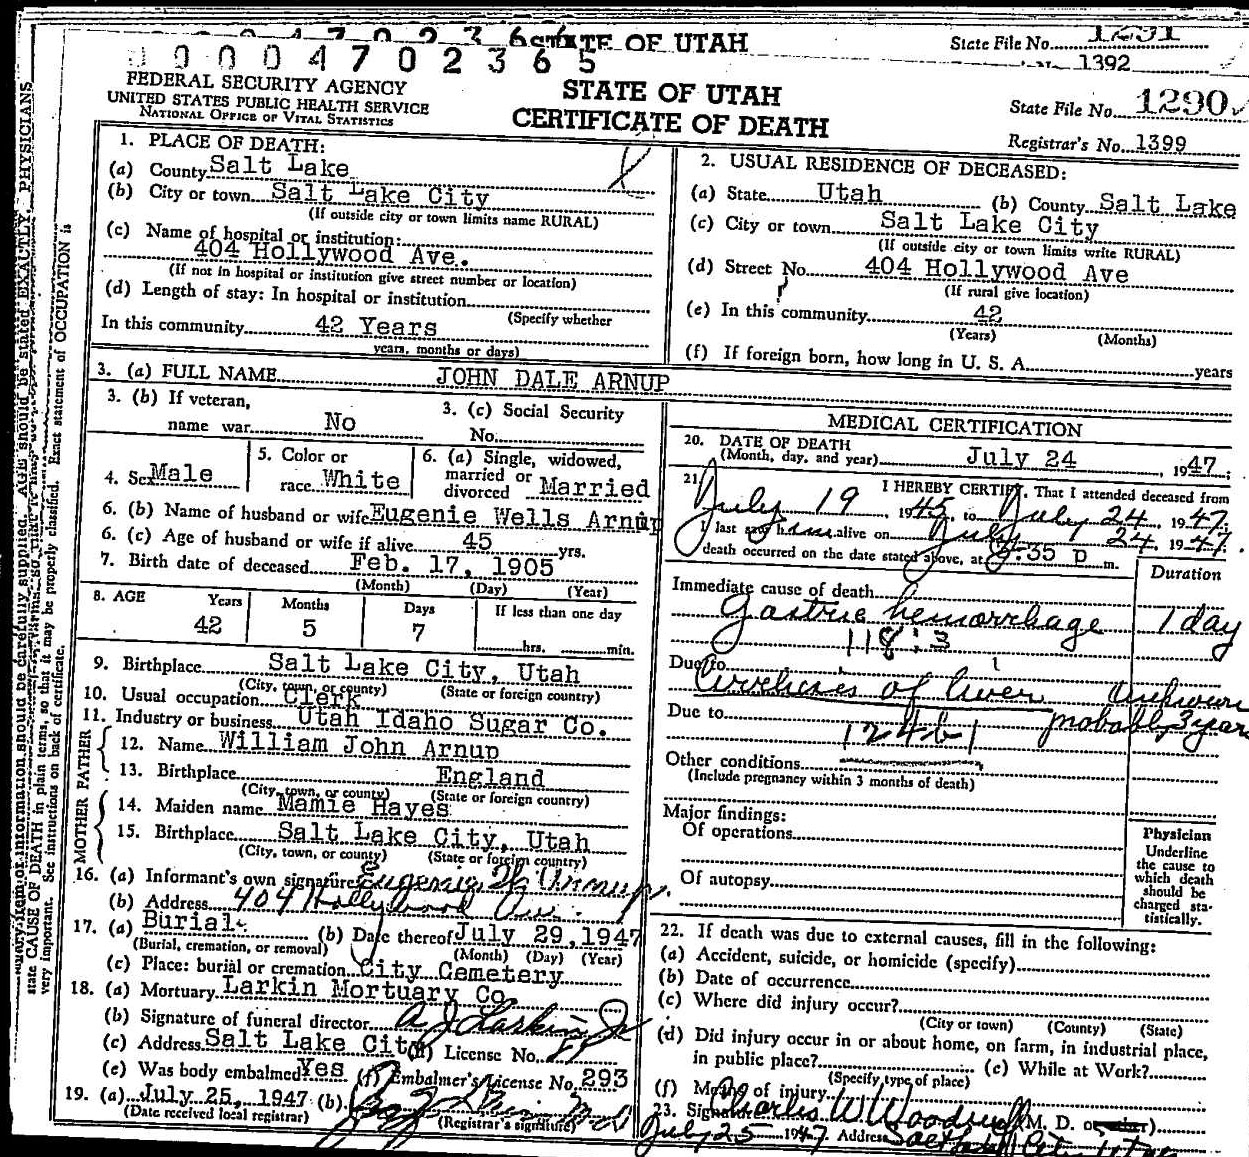 STATE OF UTAH
State File No. 1291
1392
0 0 0 0 4 7 0 2 3 6 5
FEDERAL SECURITY AGENCY
UNITED STATES PUBLIC HEALTH SERVICE
NATIONAL OFFICE OF VITAL STATISTICS
STATE OF UTAH
CERTIFICATE OF DEATH
State File No. 1290
Registrar's No. 1399
1. PLACE OF DEATH:
(a) County Salt Lake
(b) City or town Salt Lake City
(If outside city or town limits name RURAL)
(c) Name of hospital or institution:
404 Hollywood Ave.
(If not in hospital or institution give street number or location)
(d) Length of stay: In hospital or institution
(Specify whether
In this community 42 Years
years, months or days)
2. USUAL RESIDENCE OF DECEASED:
(a) State Utah (b) County Salt Lake
(c) City or town Salt Lake City
(If outside city or town limits write RURAL)
(d) Street No. 404 Hollywood Ave
(If rural give location)
(e) In this community 42
(Years) (Months)
(f) If foreign born, how long in U. S. A. years
3. (a) FULL NAME JOHN DALE ARNUP
3. (b) If veteran,
name war No
3. (c) Social Security
No.
4. Sex Male
5. Color or
race White
6. (a) Single, widowed,
married or
divorced Married
6. (b) Name of husband or wife Eugenie Wells Arnup
6. (c) Age of husband or wife if alive 45 yrs.
7. Birth date of deceased Feb. 17, 1905
(Month) (Day) (Year)
8. AGE Years Months Days If less than one day
42 5 7 hrs. min.
9. Birthplace Salt Lake City, Utah
(City, town, or county) (State or foreign country)
10. Usual occupation Clerk
11. Industry or business Utah Idaho Sugar Co.
FATHER
12. Name William John Arnup
13. Birthplace England
(City, town, or county) (State or foreign country)
MOTHER
14. Maiden name Mamie Hayes
15. Birthplace Salt Lake City, Utah
(City, town, or county) (State or foreign country)
16. (a) Informant's own signature Eugenie W. Arnup
(b) Address 404 Hollywood Ave.
17. (a) Burial (b) Date thereof July 29, 1947
(Burial, cremation, or removal) (Month) (Day) (Year)
(c) Place: burial or cremation City Cemetery
18. (a) Mortuary Larkin Mortuary Co
(b) Signature of funeral director A J Larkin Jr
(c) Address Salt Lake City (d) License No.
(e) Was body embalmed Yes (f) Embalmer's License No. 293
19. (a) July 25, 1947 (b)
(Date received local registrar) (Registrar's signature)
MEDICAL CERTIFICATION
20. DATE OF DEATH
(Month, day, and year) July 24, 1947;
21. I HEREBY CERTIFY, That I attended deceased from
July 19, 1945, to July 24, 1947.
I last saw him alive on July 24, 1947.
death occurred on the date stated above, at 5:35 p m.
Duration
Immediate cause of death
Gastric hemorrhage 1 day
118:3
Due to
Cirrhosis of liver unknown
probably 3 years
Due to
124b1
Other conditions
(Include pregnancy within 3 months of death)
Major findings:
Of operations
Of autopsy
Physician
Underline
the cause to
which death
should be
charged sta-
tistically.
22. If death was due to external causes, fill in the following:
(a) Accident, suicide, or homicide (specify)
(b) Date of occurrence
(c) Where did injury occur?
(City or town) (County) (State)
(d) Did injury occur in or about home, on farm, in industrial place,
in public place? (e) While at Work?
(Specify type of place)
(f) Means of injury
23. Signature Charles W Woodruff (M. D. or other)
July 25 1947 Address Salt Lake City Utah
state CAUSE OF DEATH in plain terms, so that it may be properly classified. Exact statement of OCCUPATION is
very important. See instructions on back of certificate.